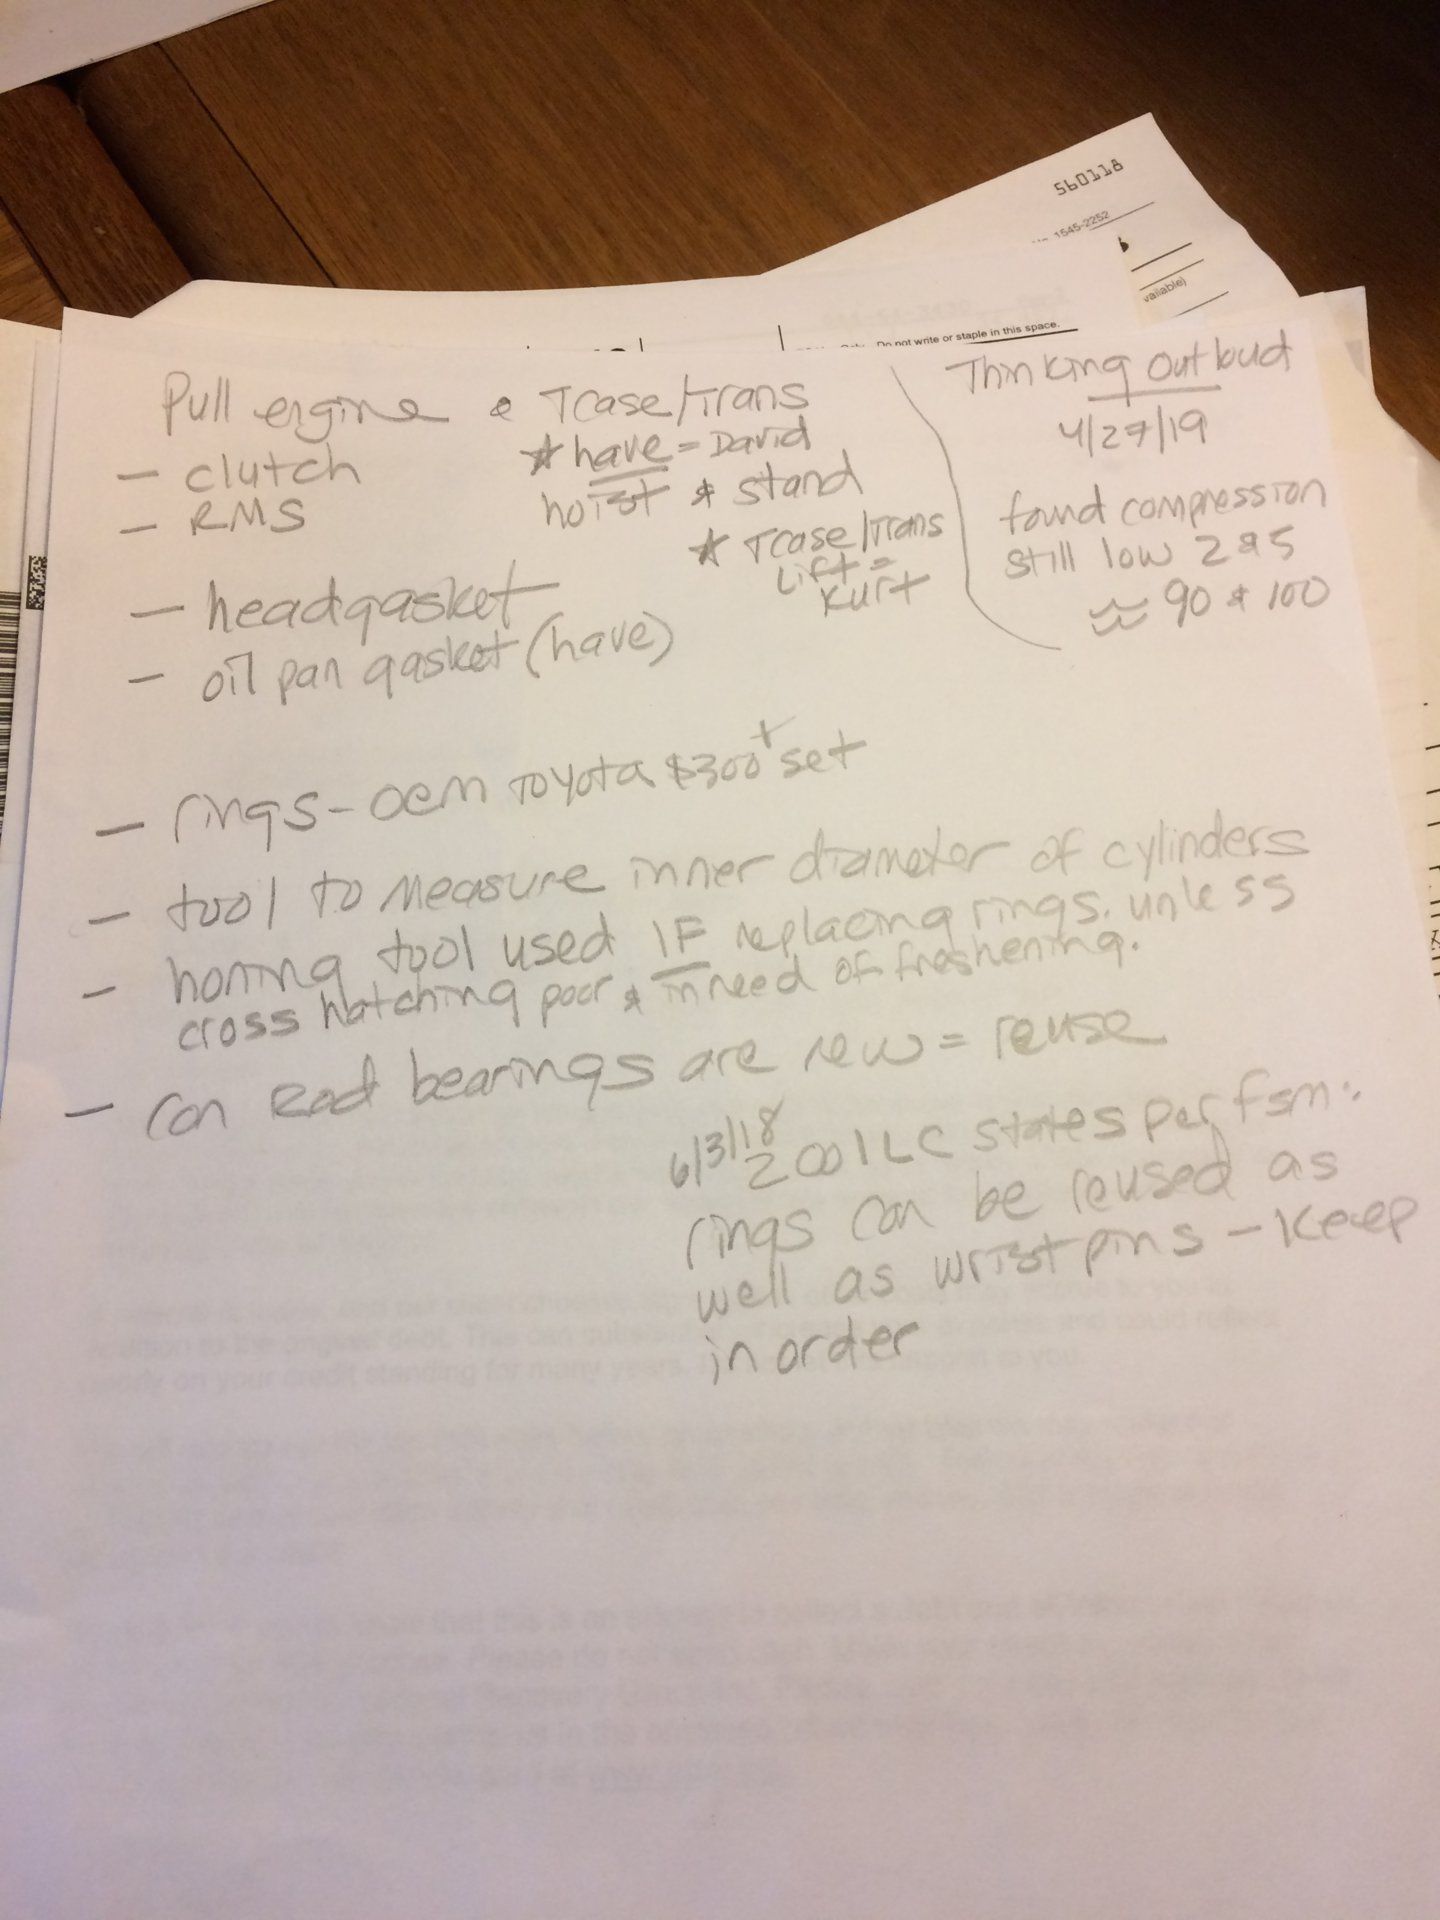 560118
1545-2252
vailable)
Do not write or staple in this space.
Pull engine & Tcase/trans
- clutch
- RMS
* have = David
hoist & stand
* Tcase/trans
Lift =
Kurt
- headgasket
- oil pan gasket (have)
Thinking out loud
4/27/19
found compression
still low 2 & 5
≈ 90 & 100
- rings - OEM Toyota $300+ set
- tool to measure inner diameter of cylinders
- honing tool used IF replacing rings. unless
cross hatching poor & in need of freshening.
- con Rod bearings are new = reuse
6/3/18 2001LC states per fsm:
rings can be reused as
well as wrist pins - keep
in order